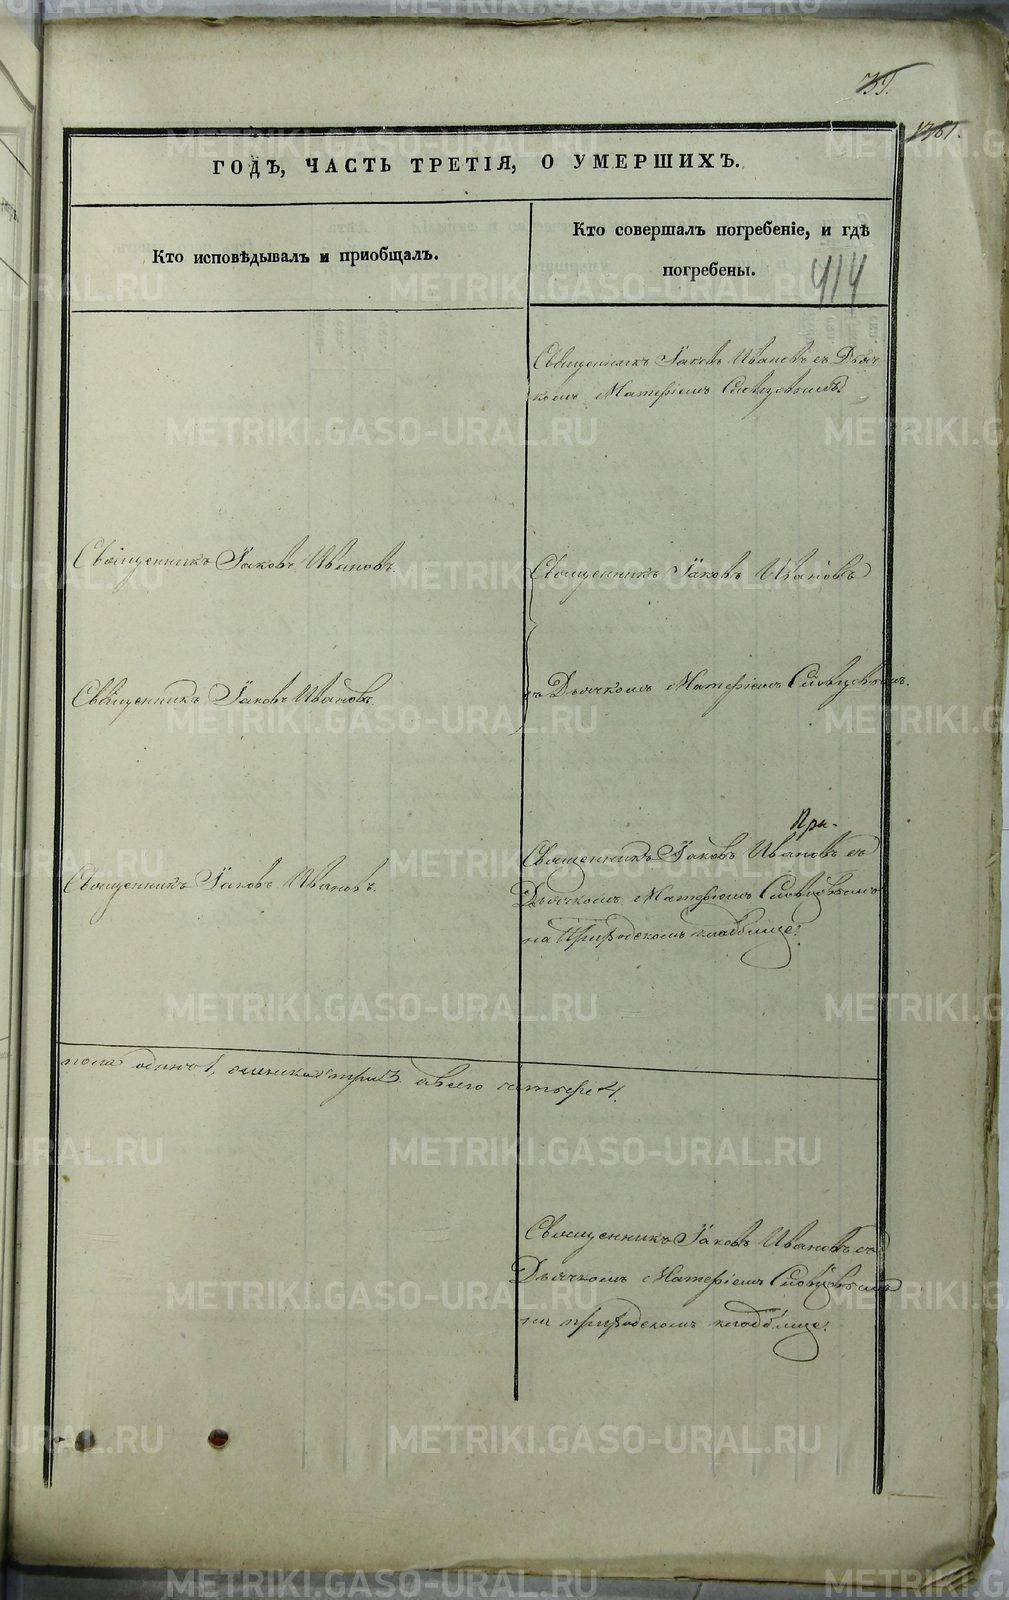 39.
1761.
ГОДЪ, ЧАСТЬ ТРЕТІЯ, О УМЕРШИХЪ.
Кто исповѣдывалъ и приобщалъ.
Кто совершалъ погребеніе, и гдѣ
погребены.
414
Священникъ Іаковъ Ивановъ съ Дьяч-
комъ Матѳіемъ Словцовымъ.
Священникъ Іаковъ Ивановъ.
Священникъ Іаковъ Ивановъ
Священникъ Іаковъ Ивановъ.
съ Дьячкомъ Матѳіемъ Словцовымъ.
Священникъ Іаковъ Ивановъ.
При-
Священникъ Іаковъ Ивановъ съ
Дьячкомъ Матѳіемъ Словцовымъ
на кладбище.
пола одинъ 1, женска три 3 а всего четыре 4.
Священникъ Іаковъ Ивановъ съ
Дьячкомъ Матѳіемъ Словцовымъ
на кладбище.
METRIKI.GASO-URAL.RU